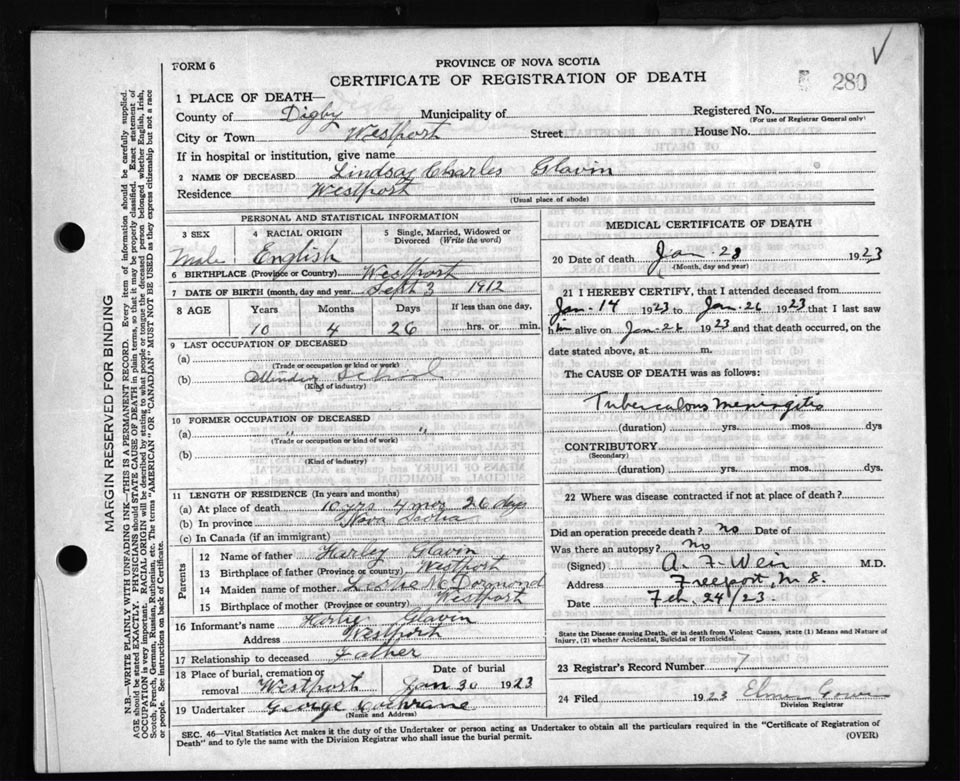 FORM 6
PROVINCE OF NOVA SCOTIA
CERTIFICATE OF REGISTRATION OF DEATH
280
1 PLACE OF DEATH—
County of Digby Municipality of Registered No.
(For use of Registrar General only)
City or Town Westport Street House No.
If in hospital or institution, give name
2 NAME OF DECEASED Lindsay Charles Glavin
Residence Westport
(Usual place of abode)
PERSONAL AND STATISTICAL INFORMATION
3 SEX Male
4 RACIAL ORIGIN English
5 Single, Married, Widowed or Divorced (Write the word)
6 BIRTHPLACE (Province or Country) Westport
7 DATE OF BIRTH (month, day and year) Sept 3 1912
8 AGE Years Months Days If less than one day,
10 4 26 hrs. or min.
9 LAST OCCUPATION OF DECEASED
(a)
(Trade or occupation or kind of work)
(b) School
(Kind of industry)
10 FORMER OCCUPATION OF DECEASED
(a) " "
(Trade or occupation or kind of work)
(b)
(Kind of industry)
11 LENGTH OF RESIDENCE (In years and months)
(a) At place of death 10 yrs 4 mos 26 days
(b) In province Nova Scotia
(c) In Canada (if an immigrant)
Parents
12 Name of father Harley Glavin
13 Birthplace of father (Province or country) Westport
14 Maiden name of mother Leslie McDormond
15 Birthplace of mother (Province or country) Westport
16 Informant's name Harlie Glavin
Address Westport
17 Relationship to deceased Father
18 Place of burial, cremation or removal Westport Date of burial Jan 30 1923
19 Undertaker George Cochrane
(Name and Address)
MEDICAL CERTIFICATE OF DEATH
20 Date of death Jan. 28 1923
(Month, day and year)
21 I HEREBY CERTIFY, that I attended deceased from
Jan. 14 1923 to Jan. 26 1923 that I last saw
him alive on Jan. 26 1923 and that death occurred, on the
date stated above, at m.
The CAUSE OF DEATH was as follows:
Tuberculous Meningitis
(duration) yrs. mos. dys
CONTRIBUTORY
(Secondary)
(duration) yrs. mos. dys.
22 Where was disease contracted if not at place of death?
Did an operation precede death? No Date of
Was there an autopsy? No
(Signed) A. F. Weir M.D.
Address Freeport, N. S.
Date Feb. 24/23.
State the Disease causing Death, or in death from Violent Causes, state (1) Means and Nature of
Injury, (2) whether Accidental, Suicidal or Homicidal.
23 Registrar's Record Number 7
24 Filed 1923 Elmer
Division Registrar
SEC. 46—Vital Statistics Act makes it the duty of the Undertaker or person acting as Undertaker to obtain all the particulars required in the "Certificate of Registration of
Death" and to fyle the same with the Division Registrar who shall issue the burial permit. (OVER)
MARGIN RESERVED FOR BINDING
N.B.—WRITE PLAINLY WITH UNFADING INK—THIS IS A PERMANENT RECORD. Every item of information should be carefully supplied.
AGE should be stated EXACTLY. PHYSICIANS should STATE CAUSE OF DEATH in plain terms, so that it may be properly classified. Exact statement of
OCCUPATION is very important. RACIAL ORIGIN will be described by stating to what people or tongue the deceased person belonged whether English, Irish,
Scotch, French, German, Russian, Ruthenian, etc. The terms "AMERICAN" OR "CANADIAN" MUST NOT BE USED as they express citizenship but not a race
or people. See instructions on back of Certificate.